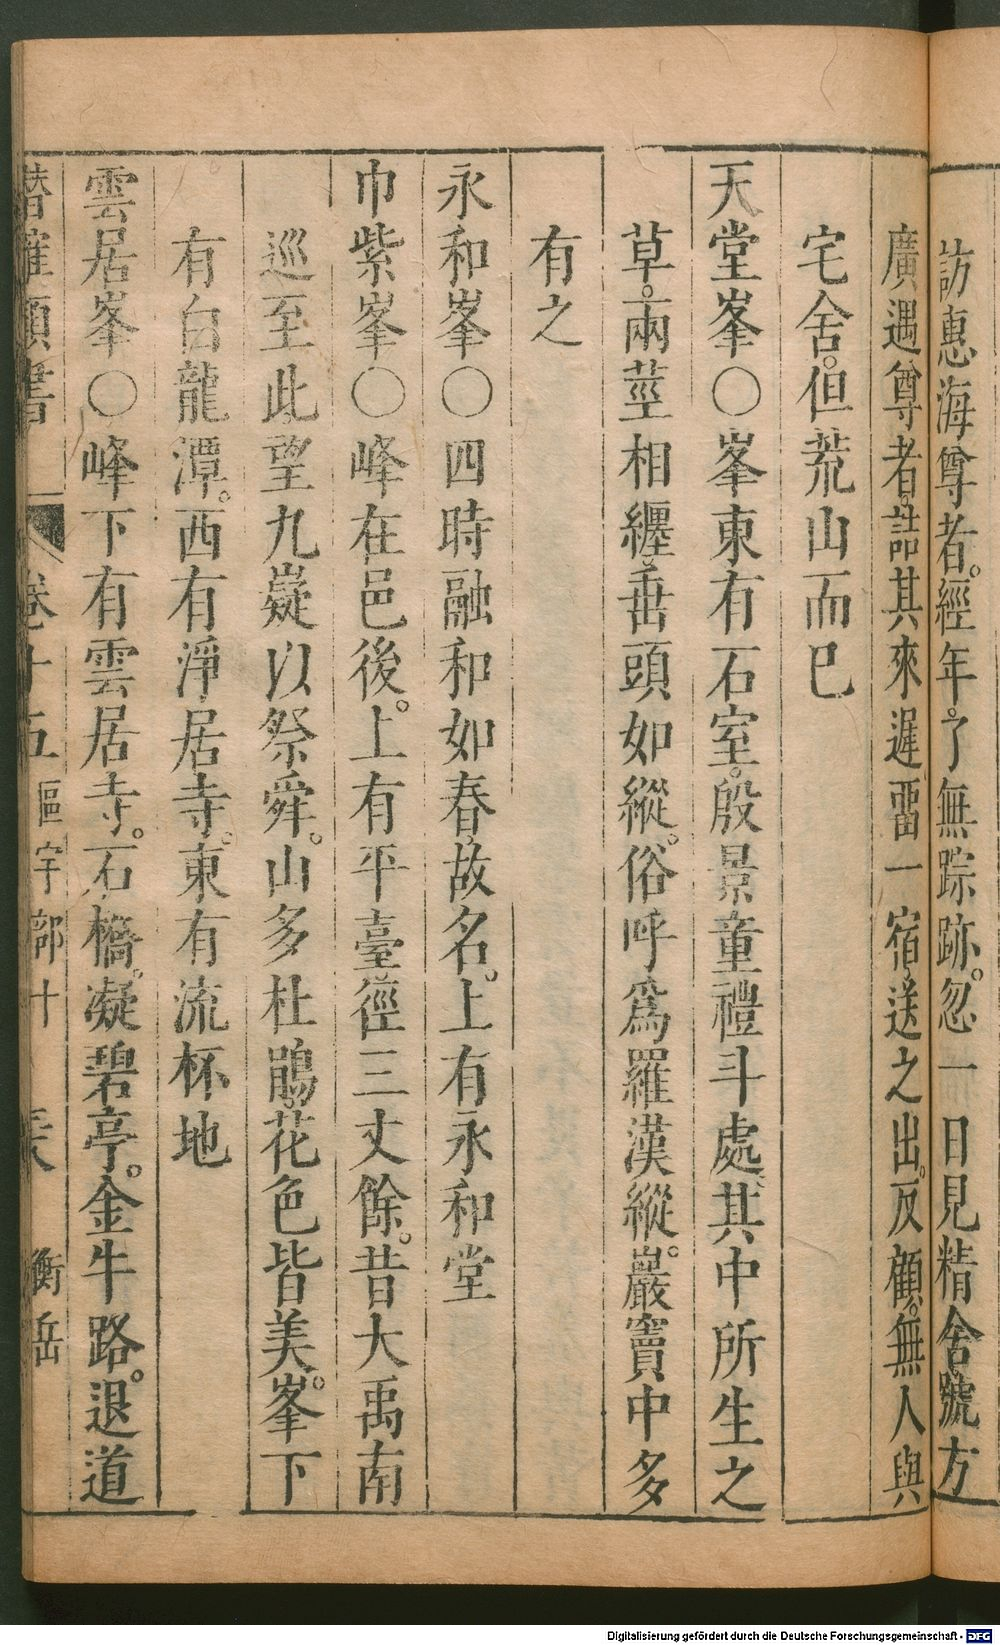 訪惠海尊者。經年。了無踪跡。忽一日見精舍號方
廣遇尊者。詰其來遲畱一宿。送之出。反顧。無人與
宅舍。但荒山而已
天堂峯〇峯東有石室。殷景童禮斗處。其中所生之
草。兩莖相纒。垂頭如縱。俗呼爲羅漢縱。巖竇中多
有之
永和峯〇四時融和如春。故名。上有永和堂
巾紫峯〇峰在邑後。上有平臺徑三丈餘。昔大禹南
巡至此。望九嶷以祭舜。山多杜鵑。花色皆美。峯下
有白龍潭。西有淨居寺。東有流杯地
雲居峯〇峰下有雲居寺。石橋。凝碧亭。金牛路。退道
潛確類書 卷十五 區宇部十 衡岳
Digitalisierung gefördert durch die Deutsche Forschungsgemeinschaft - DFG